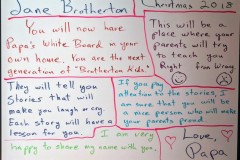 Jane Brotherton
Christmas 2018
You will now have
Papa's White Board in your
own house. You are the next
generation of "Brotherton Kids."
This will be a
place where your
parents will try
to teach you
Right from Wrong.
They will tell you
Stories that will
make you laugh or cry.
Each Story will have a
lesson for you.
If you pay
attention to the stories, I
am sure that you will be
a nice person who will make
your parents proud.
I am very
happy to share my name with you.
Love,
Papa